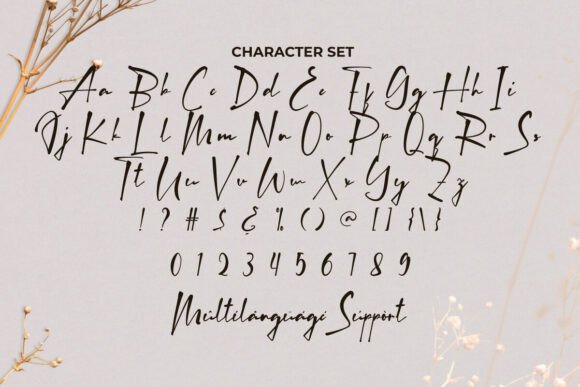 CHARACTER SET
Aa Bb Cc Dd Ee Ff Gg Hh Ii
Jj Kk Ll Mm Nn Oo Pp Qq Rr Ss
Tt Uu Vv Ww Xx Yy Zz
! ? # $ & % ( ) @ [ ] { \ }
0 1 2 3 4 5 6 7 8 9
Multilanguage Support